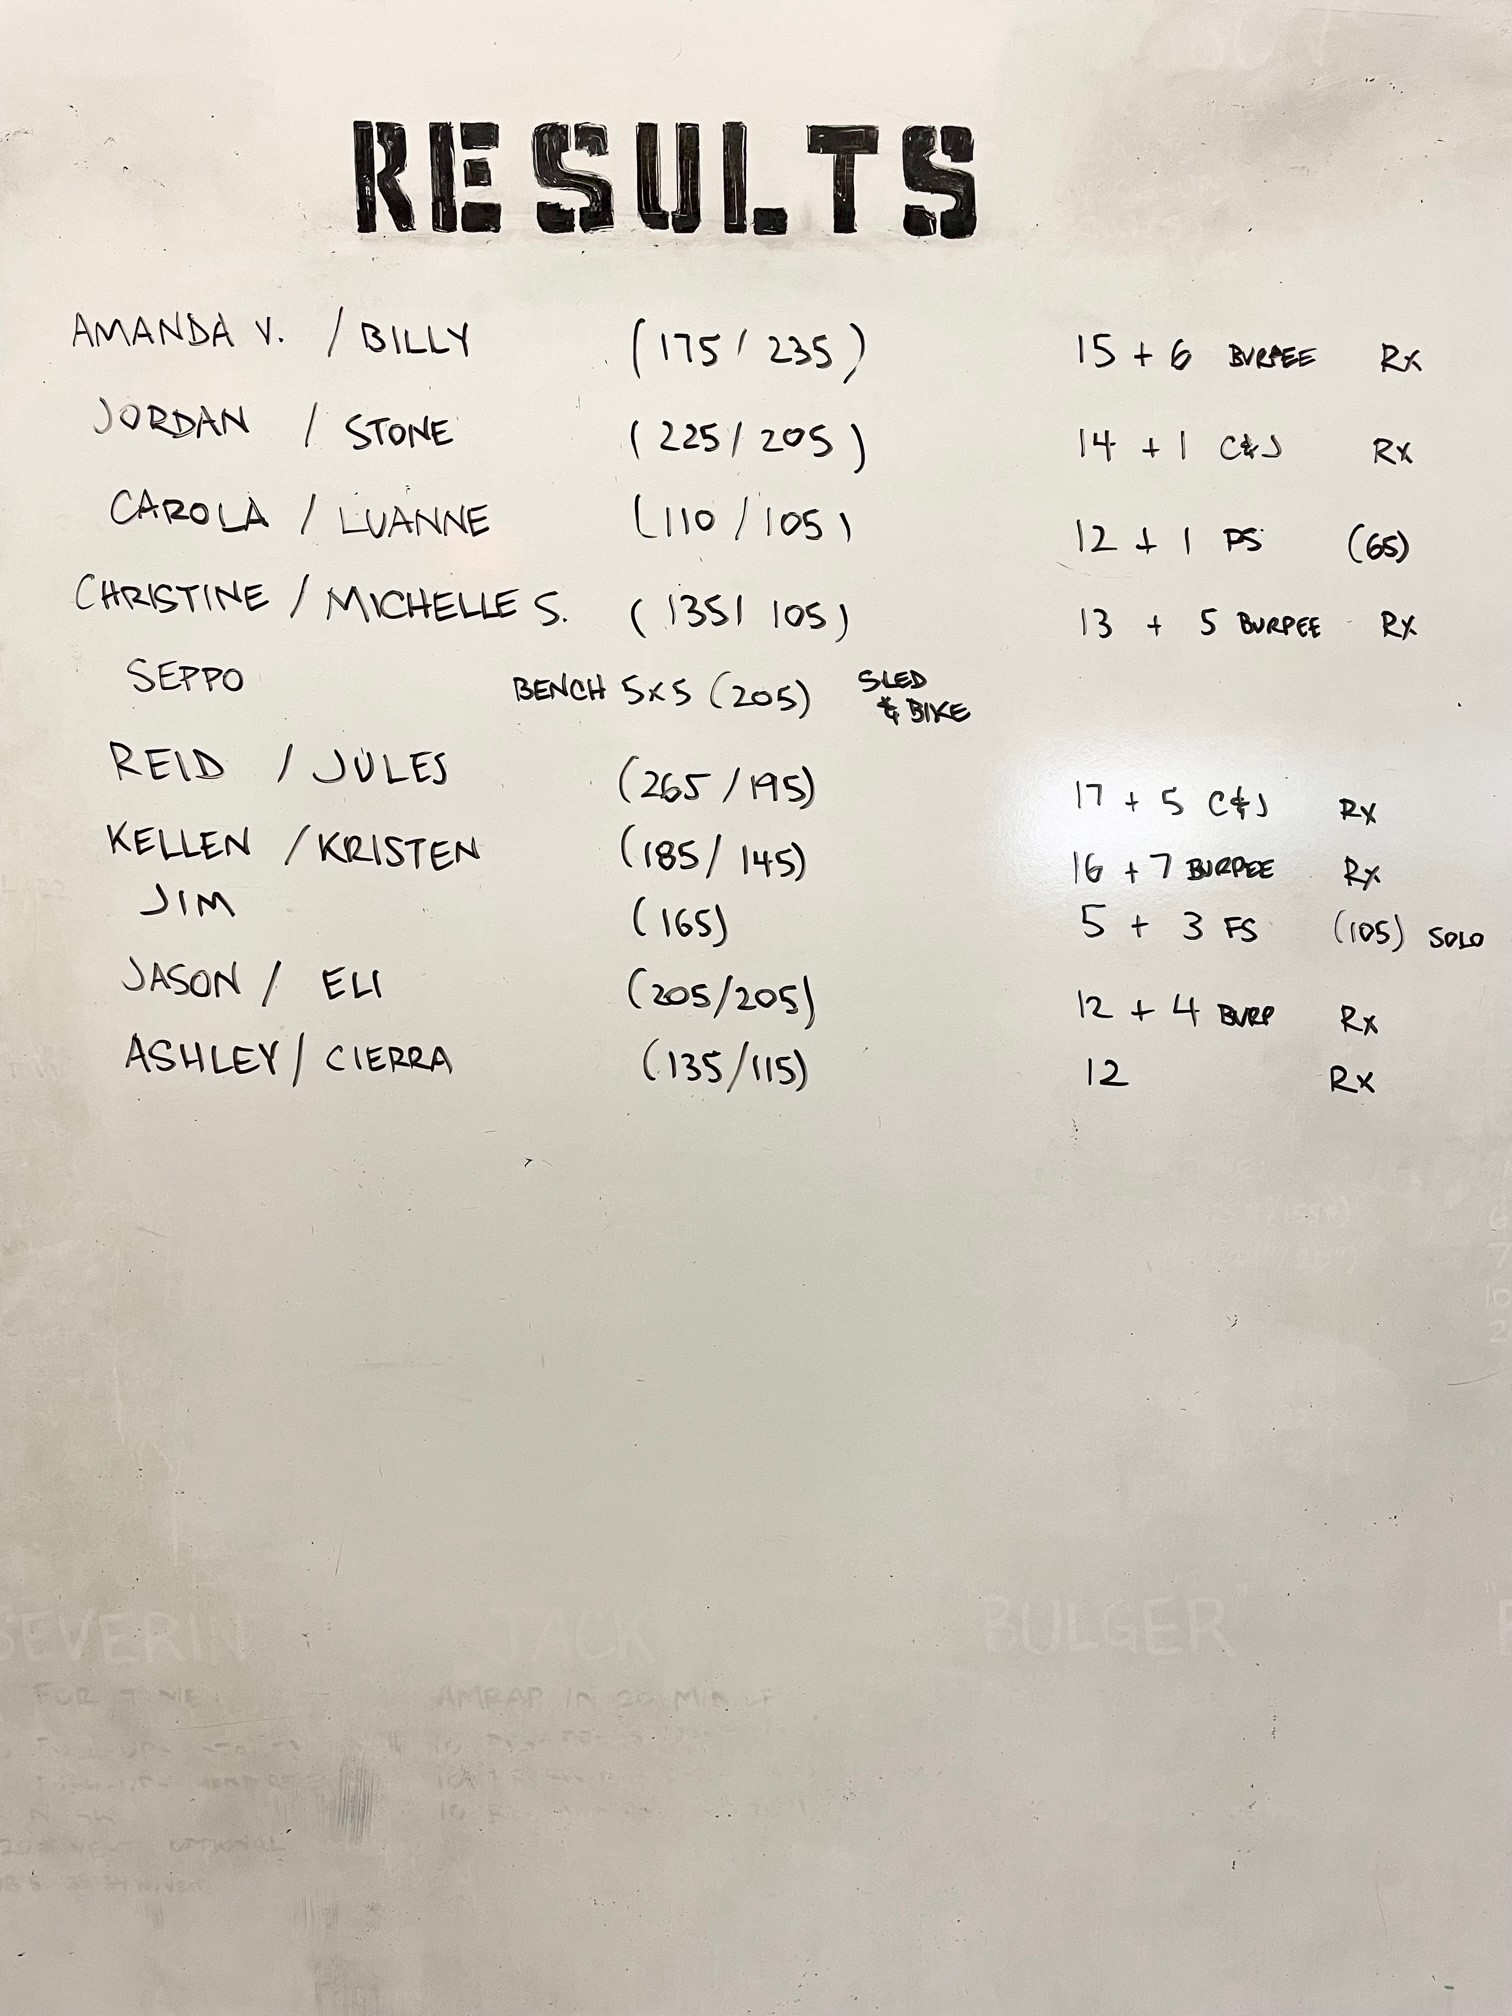 RESULTS
AMANDA V. / BILLY (175 / 235) 15 + 6 BURPEE Rx
JORDAN / STONE (225 / 205) 14 + 1 C&J Rx
CAROLA / LUANNE (110 / 105) 12 + 1 PS (65)
CHRISTINE / MICHELLE S. (135 / 105) 13 + 5 BURPEE Rx
SEPPO BENCH 5x5 (205) SLED & BIKE
REID / JULES (265 / 195) 17 + 5 C&J Rx
KELLEN / KRISTEN (185 / 145) 16 + 7 BURPEE Rx
JIM (165) 5 + 3 FS (105) SOLO
JASON / ELI (205/205) 12 + 4 BURP Rx
ASHLEY / CIERRA (135/115) 12 Rx
SEVERIN JACK BULGER"
FOR TIME AMRAP IN 20 MIN OF
OPTIONAL